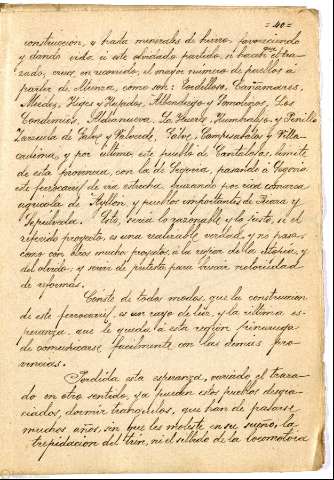 = 40 =
construccion, y hasta minerales de hierro, favoreciendo
y dando vida à este olvidado partido, si hacia que el tra-
zado, en su recorrido, el mayor número de pueblos à
partir de Atienza, como son: Bordillosa, Cañamares,
Miedes, Hijes y Ujados, Albendiego y Somolinos, Los
Condemios, Aldeanueva, La Huerce, Umbralejo, y Semillas
Zarzuela de Galve y Valverde, Galve, Campisabalos y Villa-
cadima, y por último, este pueblo de Cantalojas, limite
de esta provincia, con la de Segovia, pasando à Segovia
este ferrocarril de via estrecha, buscando por rica comarca
agricola de Ayllon, y pueblos importantes de Riaza y
Sepúlveda. Esto, seria lo razonable y lo justo, si el
referido proyecto, es una realizable verdad y no pasa,
como con otros muchos proyectos, à la region de la utopia, y
del olvido; y servir de pretesto para buscar notoriedad
de reformas.
Conste de todos modos, que la construccion
de este ferrocarril, es un rayo de luz, y la ultima es-
peranza que le queda à esta región para
comunicarse facilmente con las demas pro-
vincias.
Perdida esta esperanza, variado el traza-
do en otro sentido, ya pueden estos pueblos desgra-
ciados, dormir tranquilos, que han de pasarse
muchos años, sin que les moleste en su sueño, la
trepidacion del tren, ni el silbido de la locomotora